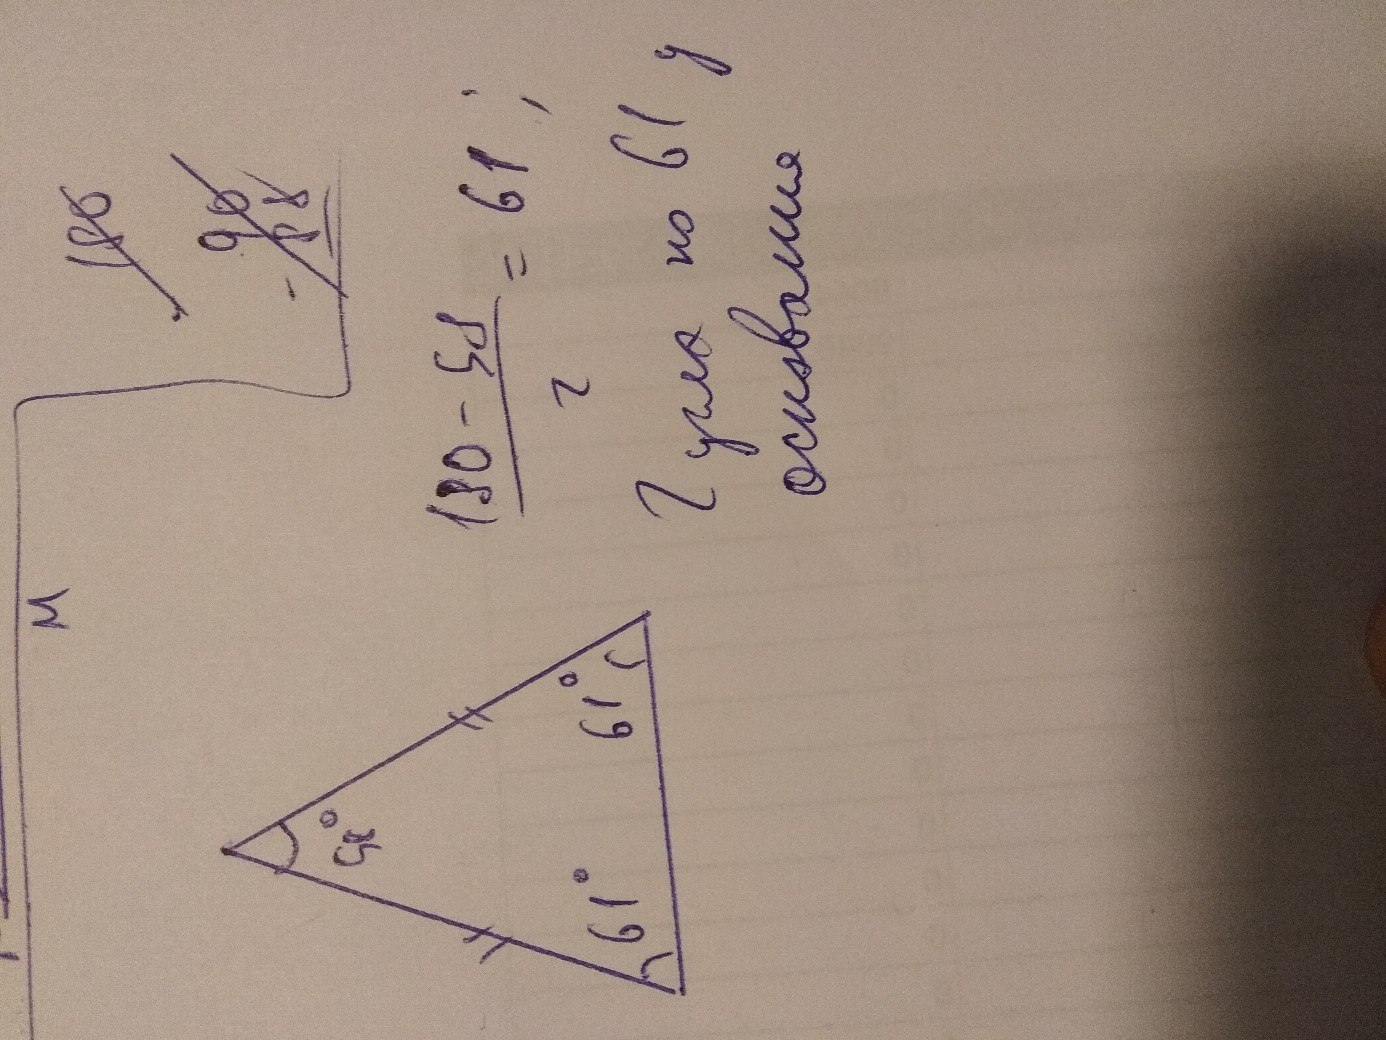 180
96
- 88
M
180 - 58
2
= 61°;
2 угла по 61 у
основания
58°
61°
61°